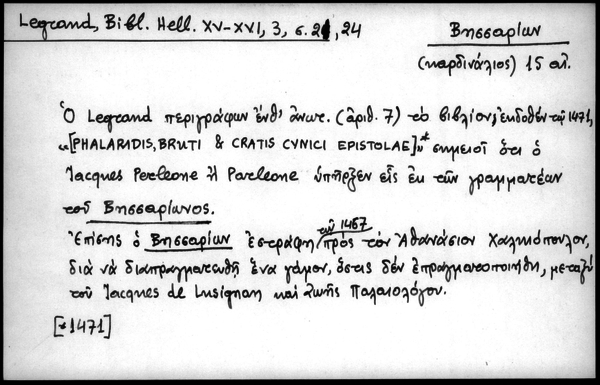 Legrand, Bibl. Hell. XV-XVI, 3, σ. 21, 24
Βησσαρίων
(καρδινάλιος) 15 αἰ.
Ὁ Legrand περιγράφων ἔνθ' ἀνωτ. (ἀριθ. 7) τὸ βιβλίον, ἐκδοθὲν τῷ 1471,
«[PHALARIDIS, BRUTI & CRATIS CYNICI EPISTOLAE]»* σημειοῖ ὅτι ὁ
Jacques Perleone ἢ Parleone ὑπῆρξεν εἷς ἐκ τῶν γραμματέων
τοῦ Βησσαρίωνος.
Ἐπίσης ὁ Βησσαρίων ἐστράφη τῷ 1467 πρὸς τὸν Ἀθανάσιον Χαλκιόπουλον,
διὰ νὰ διαπραγματευθῇ ἕνα γάμον, ὅστις δὲν ἐπραγματοποιήθη, μεταξὺ
τοῦ Jacques de Lusignan καὶ Ζωῆς Παλαιολόγου.
[*1471]